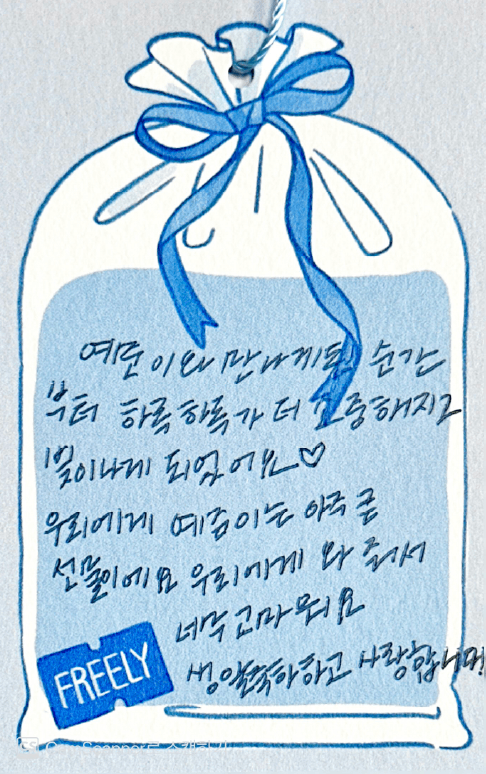 예준이와 만나게된 순간
부터 하루하루가 더 소중해지고
빛이나게 되었어요♡
우리에게 예준이는 아주 큰
선물이에요 우리에게 와 줘서
너무 고마워요
생일축하하고 사랑합니다!
FREELY